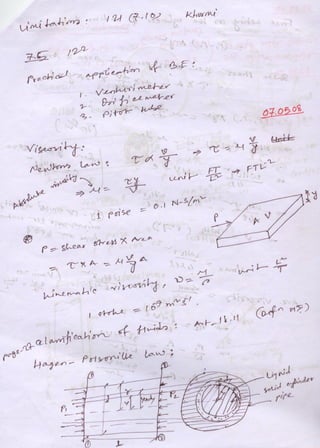 Limitations: 121 (7.10) Khurmi
7.5 / 122
Practical application of B.E :
1. Venturimeter
2. Orificemeter
3. Pitot tube
07.05.08
Viscosity:-
Newtons Law: τ ∝ V/y → τ = μ V/y Unit
Absolute viscosity ⇒ μ = τy/V unit FT/L² → FTL⁻²
1 poise = 0.1 N-S/m²
P A V y
P = Shear stress × Area
= τ × A = μ V/y A
kinematic viscosity, ν = μ/ρ unit L²/T
1 stoke = 10⁻⁴ m²s⁻¹
Classification of fluids: Art-18.11 (Defn
Hagen - Poiseuille Law:
P₁ P₂ Liquid
solid cylinder
pipe
L